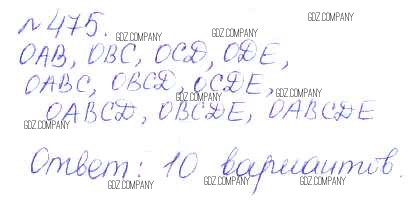 №475.
OAB, OBC, OCD, ODE,
OABC, OBCD, OCDE,
OABCD, OBCDE, OABCDE
Ответ: 10 вариантов.
GDZ.COMPANY
GDZ.COMPANY
GDZ.COMPANY
GDZ.COMPANY
GDZ.COMPANY
GDZ.COMPANY
GDZ.COMPANY
GDZ.COMPANY
GDZ.COMPANY
GDZ.COMPANY